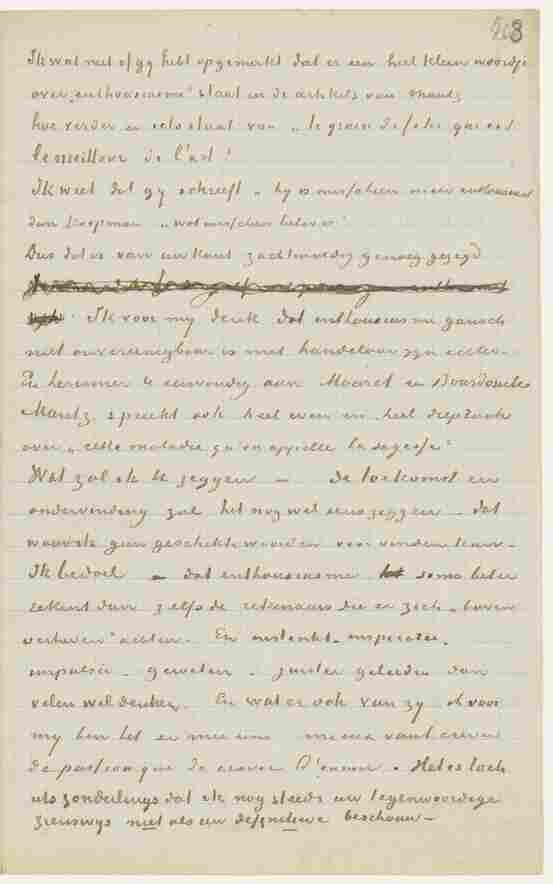 Ik weet niet of gy hebt opgemerkt dat er een heel klein woordje
over „enthousiasme” staat in de artikels van Mantz
hoe verder en iets staat van „le grain de folie qui est
le meilleur de l'art”!
Ik weet dat gy schreeft „hy is misschien meer enthousiast
dan koopman „ misschien beter is”
Dus dat is van uw kant zachtmoedig genoeg gezegd
Ik voor my denk dat enthousiasme gansch
niet onvereenigbaar is met handelaar zyn echter.
En herinner U eenvoudig aan Mouret en Bourdoncles
Mantz spreekt ook heel even en heel diepzinnig
over „cette maladie qu'on appelle la sagesse”
Wat zal ik U zeggen – de toekomst en
ondervinding zal het nog wel eens zeggen – dat
waarvoor geen geschikte woorden voor vinden kan –
Ik bedoel – dat enthousiasme soms beter
rekent dan zelfs de rekenaars die er zich „boven
verheven” achten. En instinkt – inspiratie.
impulsie – geweten – juister geleiden dan
velen wel denken. En wat er ook van zy ik voor
my ben het er mee eens mieux vaut crever
de passion que de crever d'ennui. Het is toch
iets zonderlings dat ik nog steeds uw tegenwoordige
zienswys niet als uw definitieve beschouw –